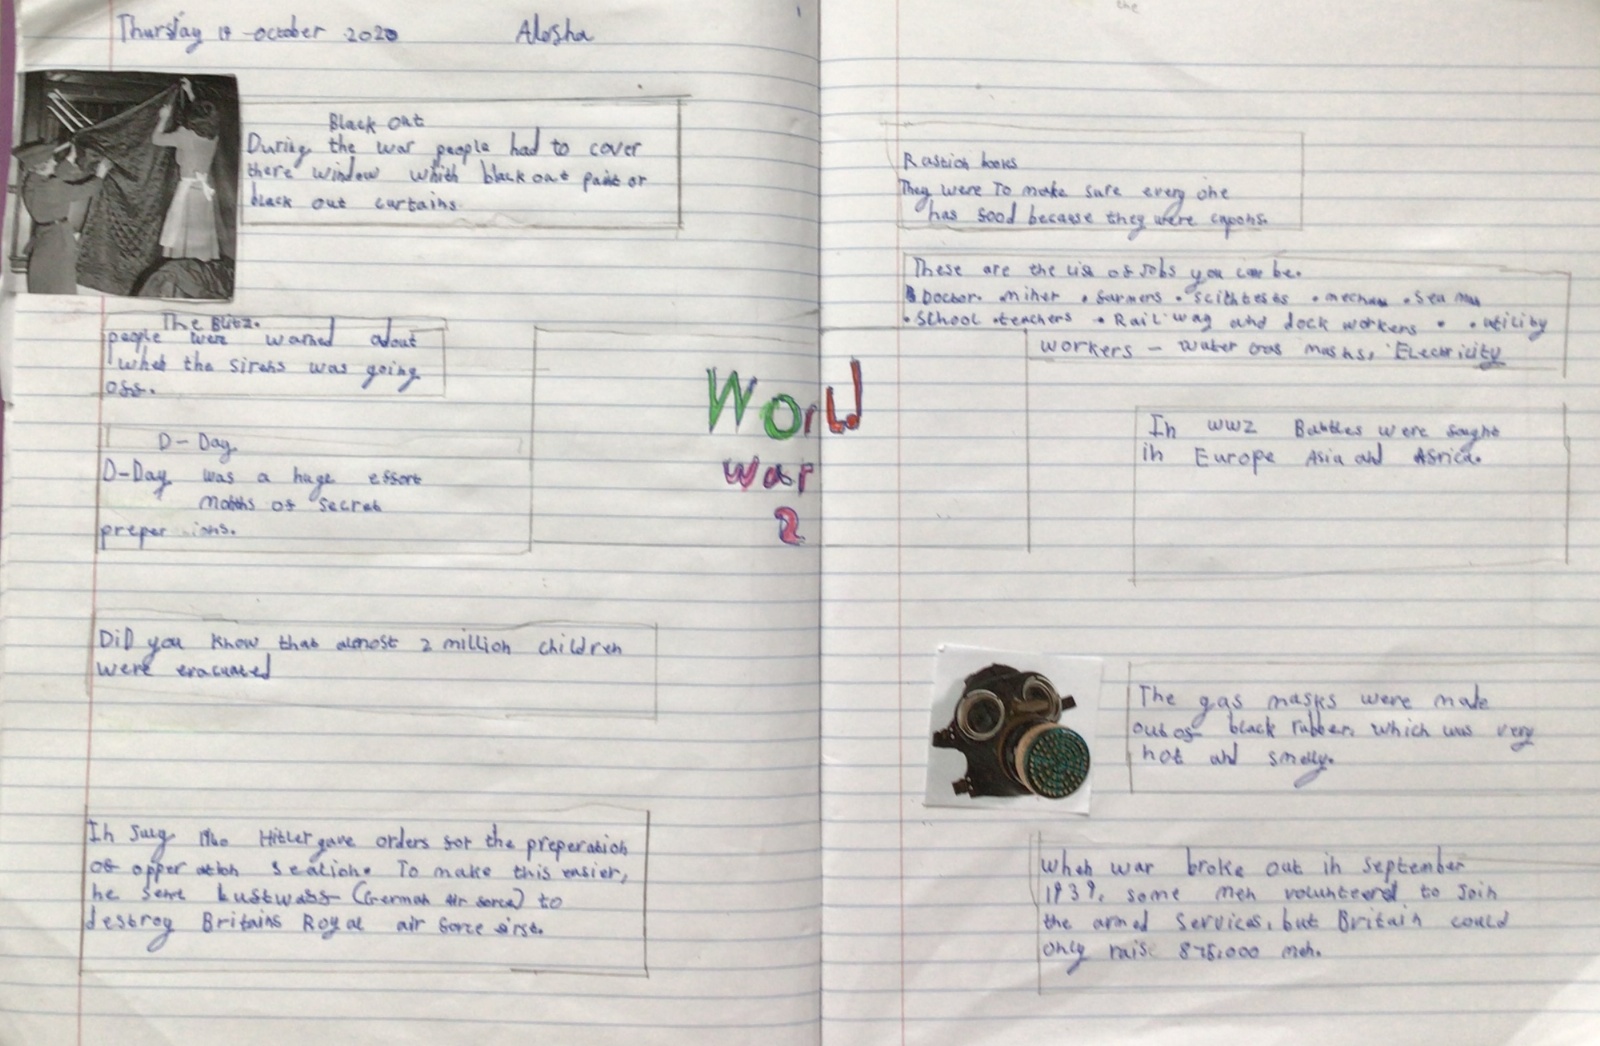 Thursday 1 October 2020
Alosha
Black out
During the war people had to cover
there window whith black out paint or
black out curtains.
The Blitz.
people were warned about
when the sirens was going
off.
D-Day
D-Day was a huge effort
months of secret
preper ions.
DiD you know that almost 2 million children
were evacuated
In July 1940 Hitler gave orders for the preperation
of opper ation Sealion. To make this easier,
he sent Lustwass (German Air force) to
destroy Britains Royal air force first.
World
war
2
the
Rastion books
They were To make sure every one
has food because they were cupons.
These are the list of Jobs you can be.
Doctor. miner • farmers • scithtests • mechan • Sea man
• School teachers • Rail way and dock workers • • utility
workers - water Gas masks, Electricity
In ww2 Battles were fought
in Europe Asia and Africa.
The gas masks were made
out of black rubber, which was very
hot and smelly.
When war broke out in September
1939, some men volunteered to Join
the armed Services, but Britain could
only raise 875,000 men.